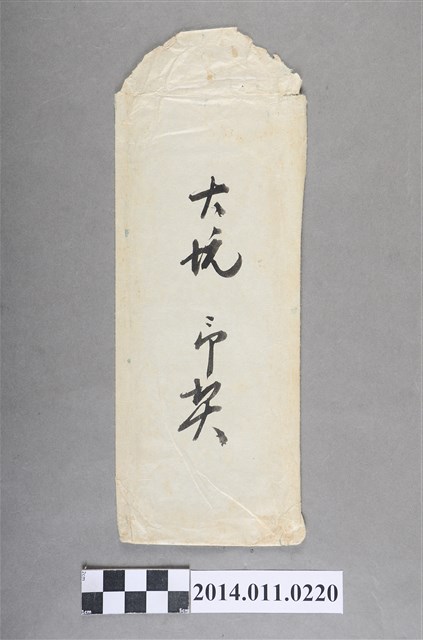 大坑 印契
2014.011.0220